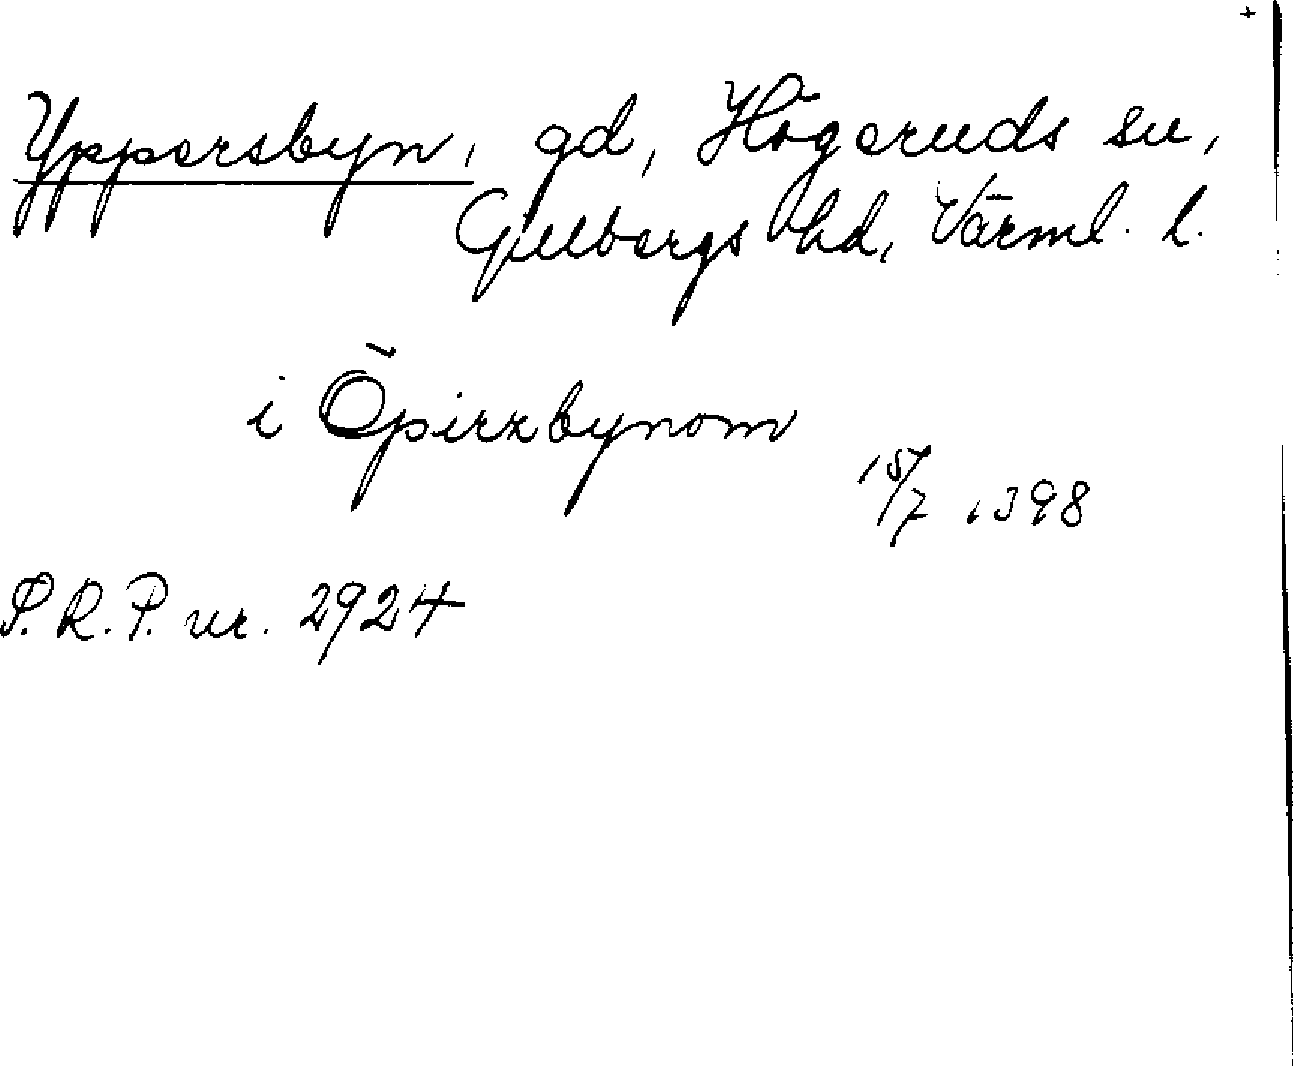 Yppersbyn, gd, Högeruds sn,
Gillbergs hd, Värml. l.
i Öpirzbynom
15/7 1398
S.R.P. nr. 2924